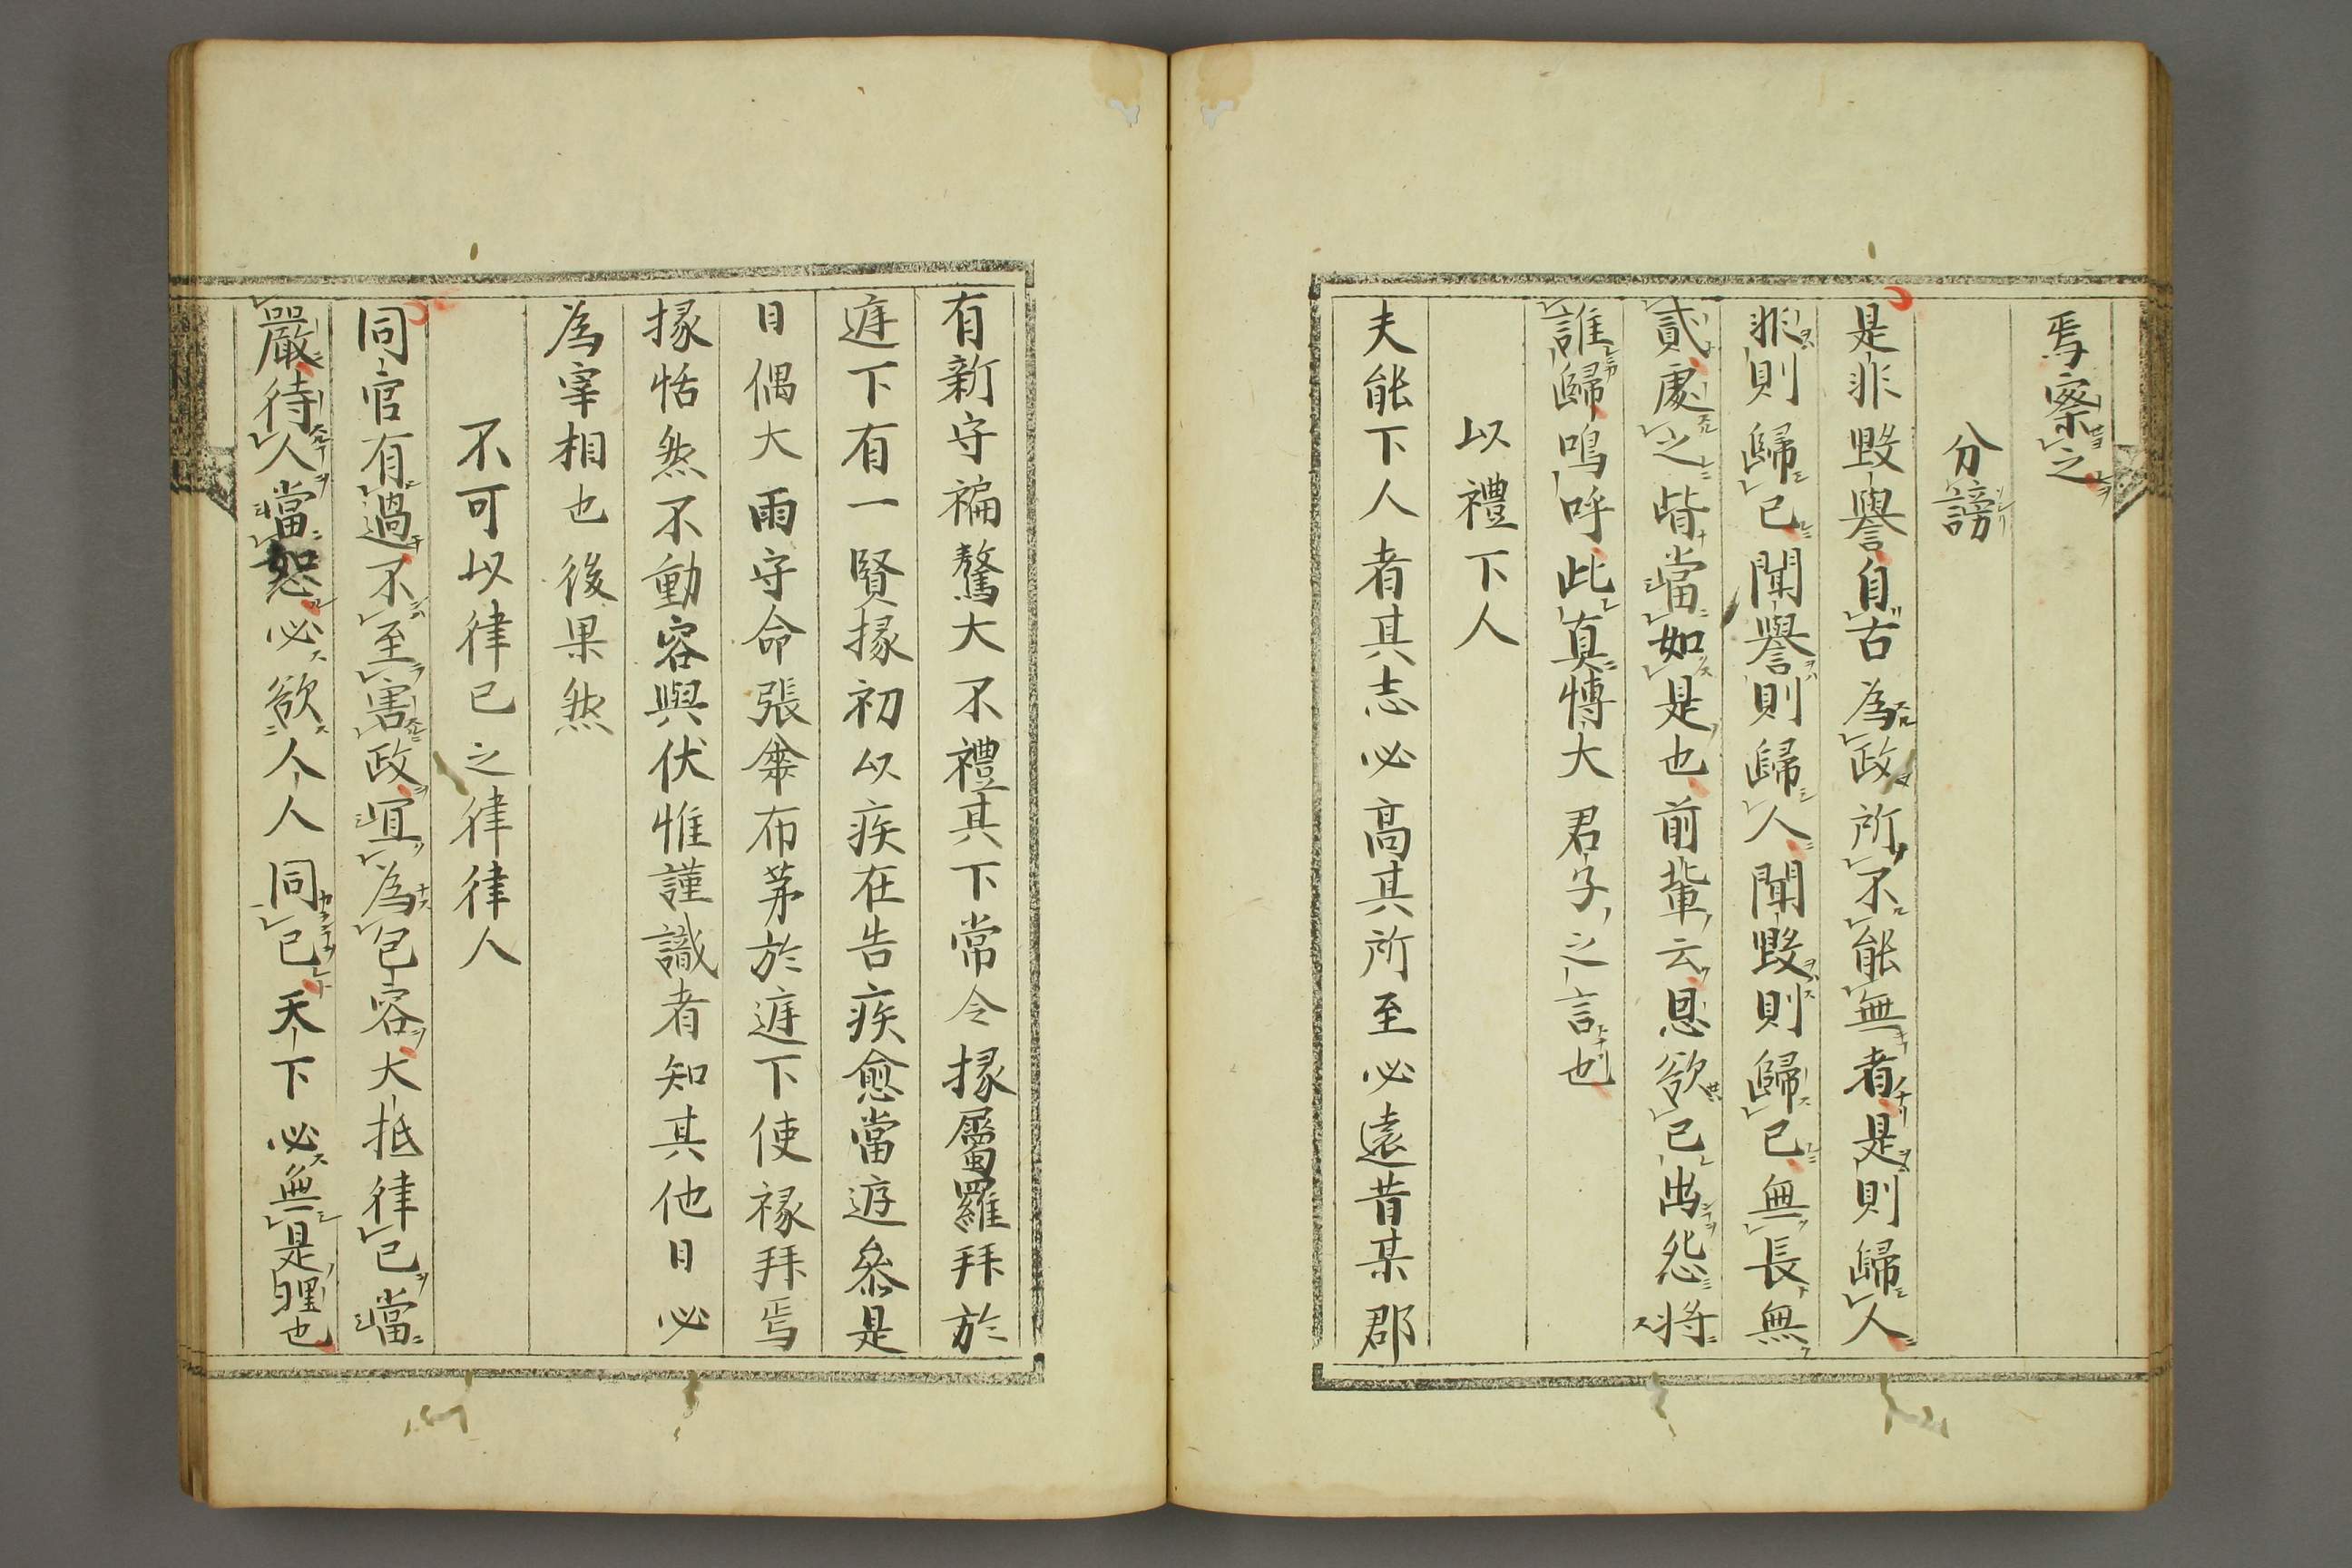 焉察之
分謗
是非毀譽自古為政所不能無者是則歸人
非則歸已聞譽則歸人聞毀則歸已無長無
貳處之皆當如是也前輩云恩欲已出怨將
誰歸嗚呼此真慱大君子之言也
以禮下人
夫能下人者其志必高其所至必遠昔某郡
有新守褊驁大不禮其下常令掾屬羅拜於
庭下有一賢掾初以疾在告疾愈當庭叅是
日偶大雨守命張傘布茅於庭下使掾拜焉
掾恬然不動容與伏惟謹識者知其他日必
為宰相也後果然
不可以律已之律律人
同官有過不至害政宜為包容大抵律已當
嚴待人當恕必欲人人同已天下必無是理也